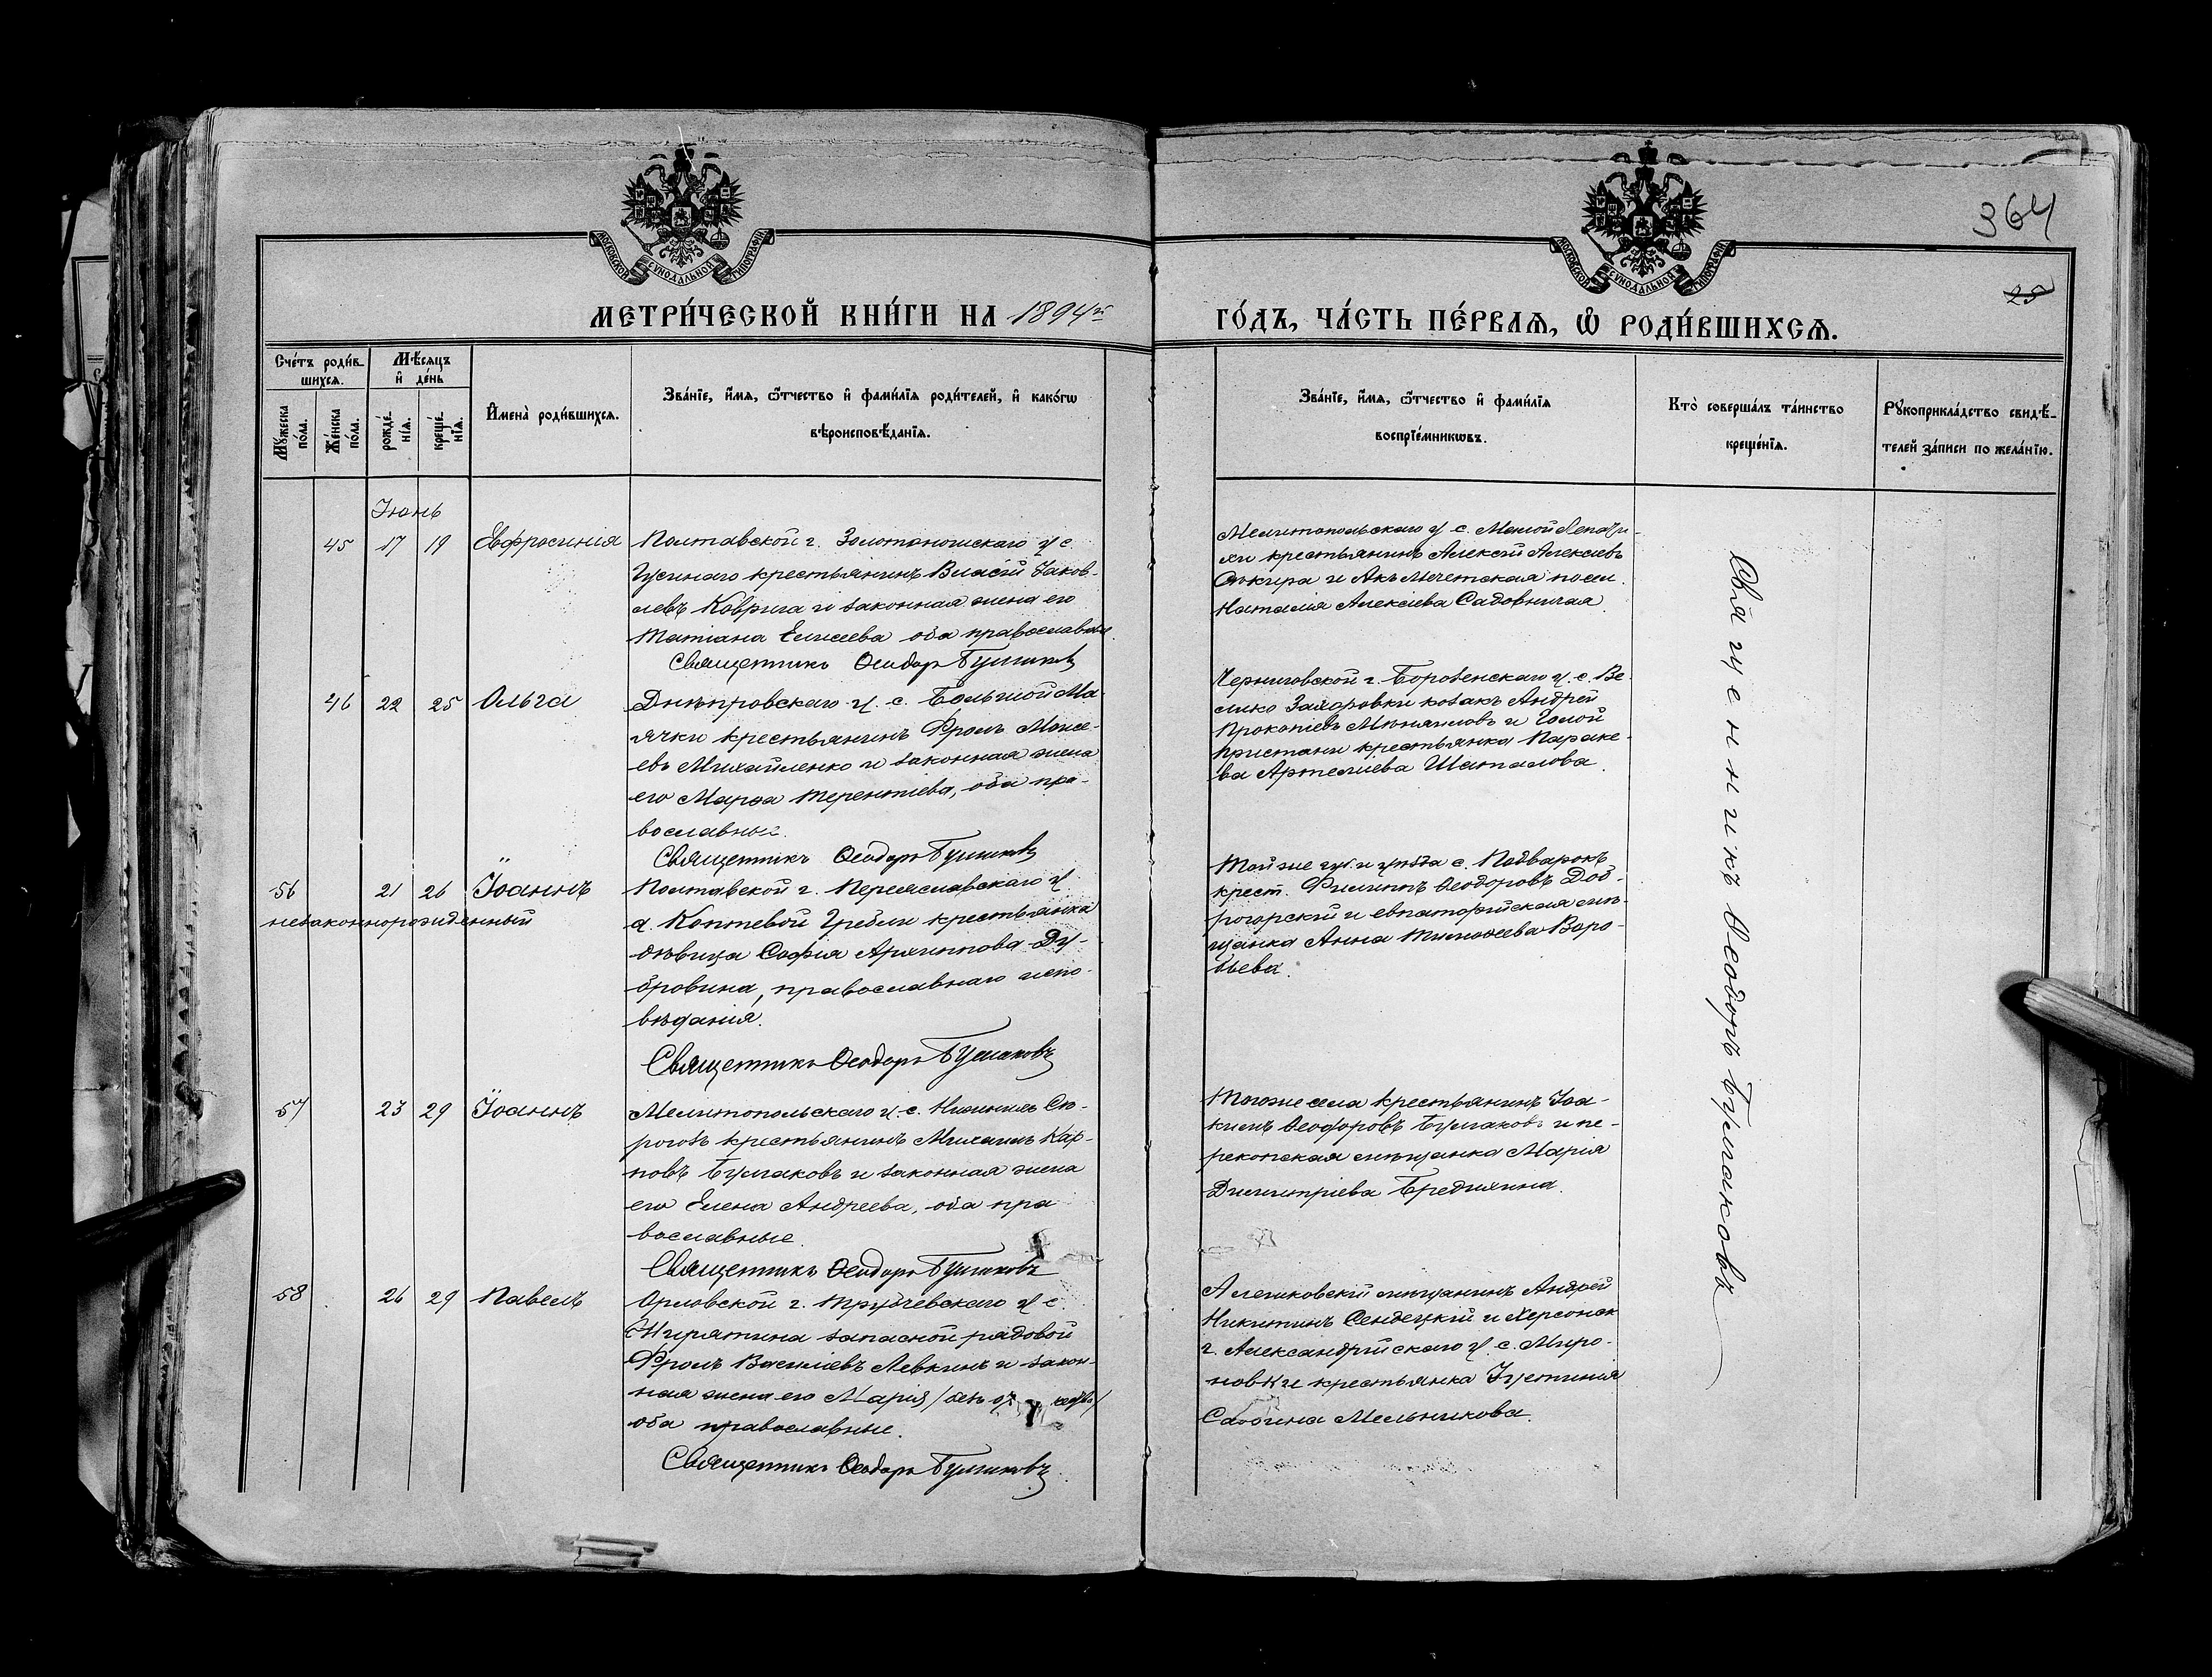 364
25
МОСКОВСКОЙ СѴНОДАЛЬНОЙ ТИПОГРАФІИ
МОСКОВСКОЙ СѴНОДАЛЬНОЙ ТИПОГРАФІИ
МЕТРИ́ЧЕСКОЙ КНИ́ГИ НА 1894й
ГО́ДЪ, ЧА́СТЬ ПЕ́РВАЯ, Ѡ РОДИ́ВШИХСѦ.
Сче́тъ роди́в-
шихсѧ.
Мѣ́сяцъ
и҆ де́нь
Мꙋ́жеска по́ла.
Же́нска по́ла.
рожде́-
нїѧ.
креще́-
нїѧ.
И҆мена̀ роди́вшихсѧ.
Зва́нїе, и҆́мѧ, ѻ҆́тчество и҆ фами́лїѧ роди́телей, и҆ како́гѡ
вѣроисповѣ́данїѧ.
Зва́нїе, и҆́мѧ, ѻ҆́тчество и҆ фами́лїѧ
воспрїе́мникѡвъ.
Кто̀ соверша́лъ та́инство
креще́нїѧ.
Рꙋкоприкла́дство свидѣ́-
телей за́писи по жела́нїю.
Іюнь
45 17 19 Евфросинія Полтавской г. Золотоношскаго у с.
Гусинаго крестьянинъ Власій Іаков-
левъ Коврига и законная жена его
Татіана Елисеева оба православные.
Священникъ Ѳеодоръ Булшаковъ
Мелитопольскаго у. с. Малой Лепати-
хи крестьянинъ Алексій Алексіевъ
Сокира и Акъ Мечетская посел.
Наталія Алексіева Садовничая.
46 22 25 Ольга Днѣпровскаго у. с. Большой Ма-
ячки крестьянинъ Фролъ Моисе-
евъ Михайленко и законная жена
его Марѳа Терентіева, оба пра-
вославные.
Священникъ Ѳеодоръ Булшаковъ
Черниговской г. Борзенскаго у. с. Ве-
лико Загоровки козакъ Андрей
Прокопіевъ и Голой
Пристани крестьянка Параске-
ва Артеміева Шаталова.
56 21 26 Іоаннъ
незаконнорожденный
Полтавской г. Переяславскаго у.
д. Коптевой Гребли крестьянка
дѣвица Софія Архиппова Ду-
бровина, православнаго испо-
вѣданія.
Священникъ Ѳеодоръ Булшаковъ
Той же губ. и уѣзда с. Подварокъ
крест. Филиппъ Ѳеодоровъ Доб-
рогорскій и евпаторійская мѣ-
щанка Анна Тимоѳеева Воро-
бьева.
57 23 29 Іоаннъ Мелитопольскаго у. с. Нижнихъ Сѣ-
рогозъ крестьянинъ Михаилъ Кар-
повъ Булшаковъ и законная жена
его Елена Андреева, оба пра-
вославные.
Священникъ Ѳеодоръ Булшаковъ
Тогоже села крестьянинъ Іоа-
кимъ Ѳеодоровъ Булшаковъ и пе-
рекопская мѣщанка Марія
Димитріева Бредихина.
58 26 29 Павелъ Орловской г. Трубчевскаго у с.
запасной рядовой
Фролъ Василіевъ Левкинъ и закон-
ная жена его Марія
оба православные.
Священникъ Ѳеодоръ Булшаковъ
Алешковскій мѣщанинъ Андрей
Никитинъ Сендецкій и Херсонск.
г. Александрійскаго у. с. Миро-
новки крестьянка Іустинія
Саввина Мельникова.
Священникъ Ѳеодоръ Булшаковъ